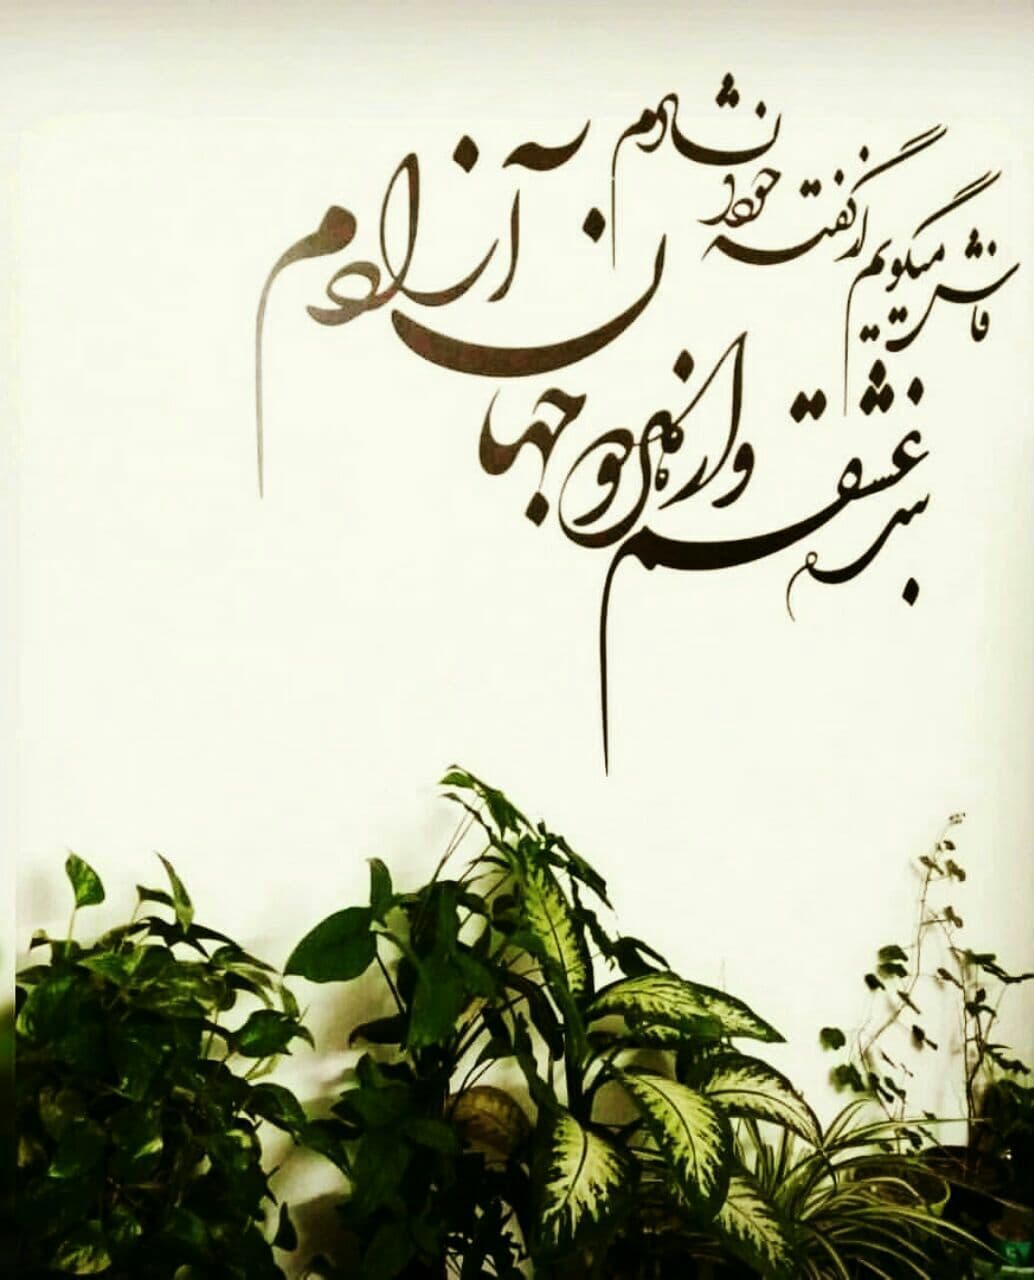 فاش میگویم از گفته خود دلشادم
بنده عشقم و از هر دو جهان آزادم